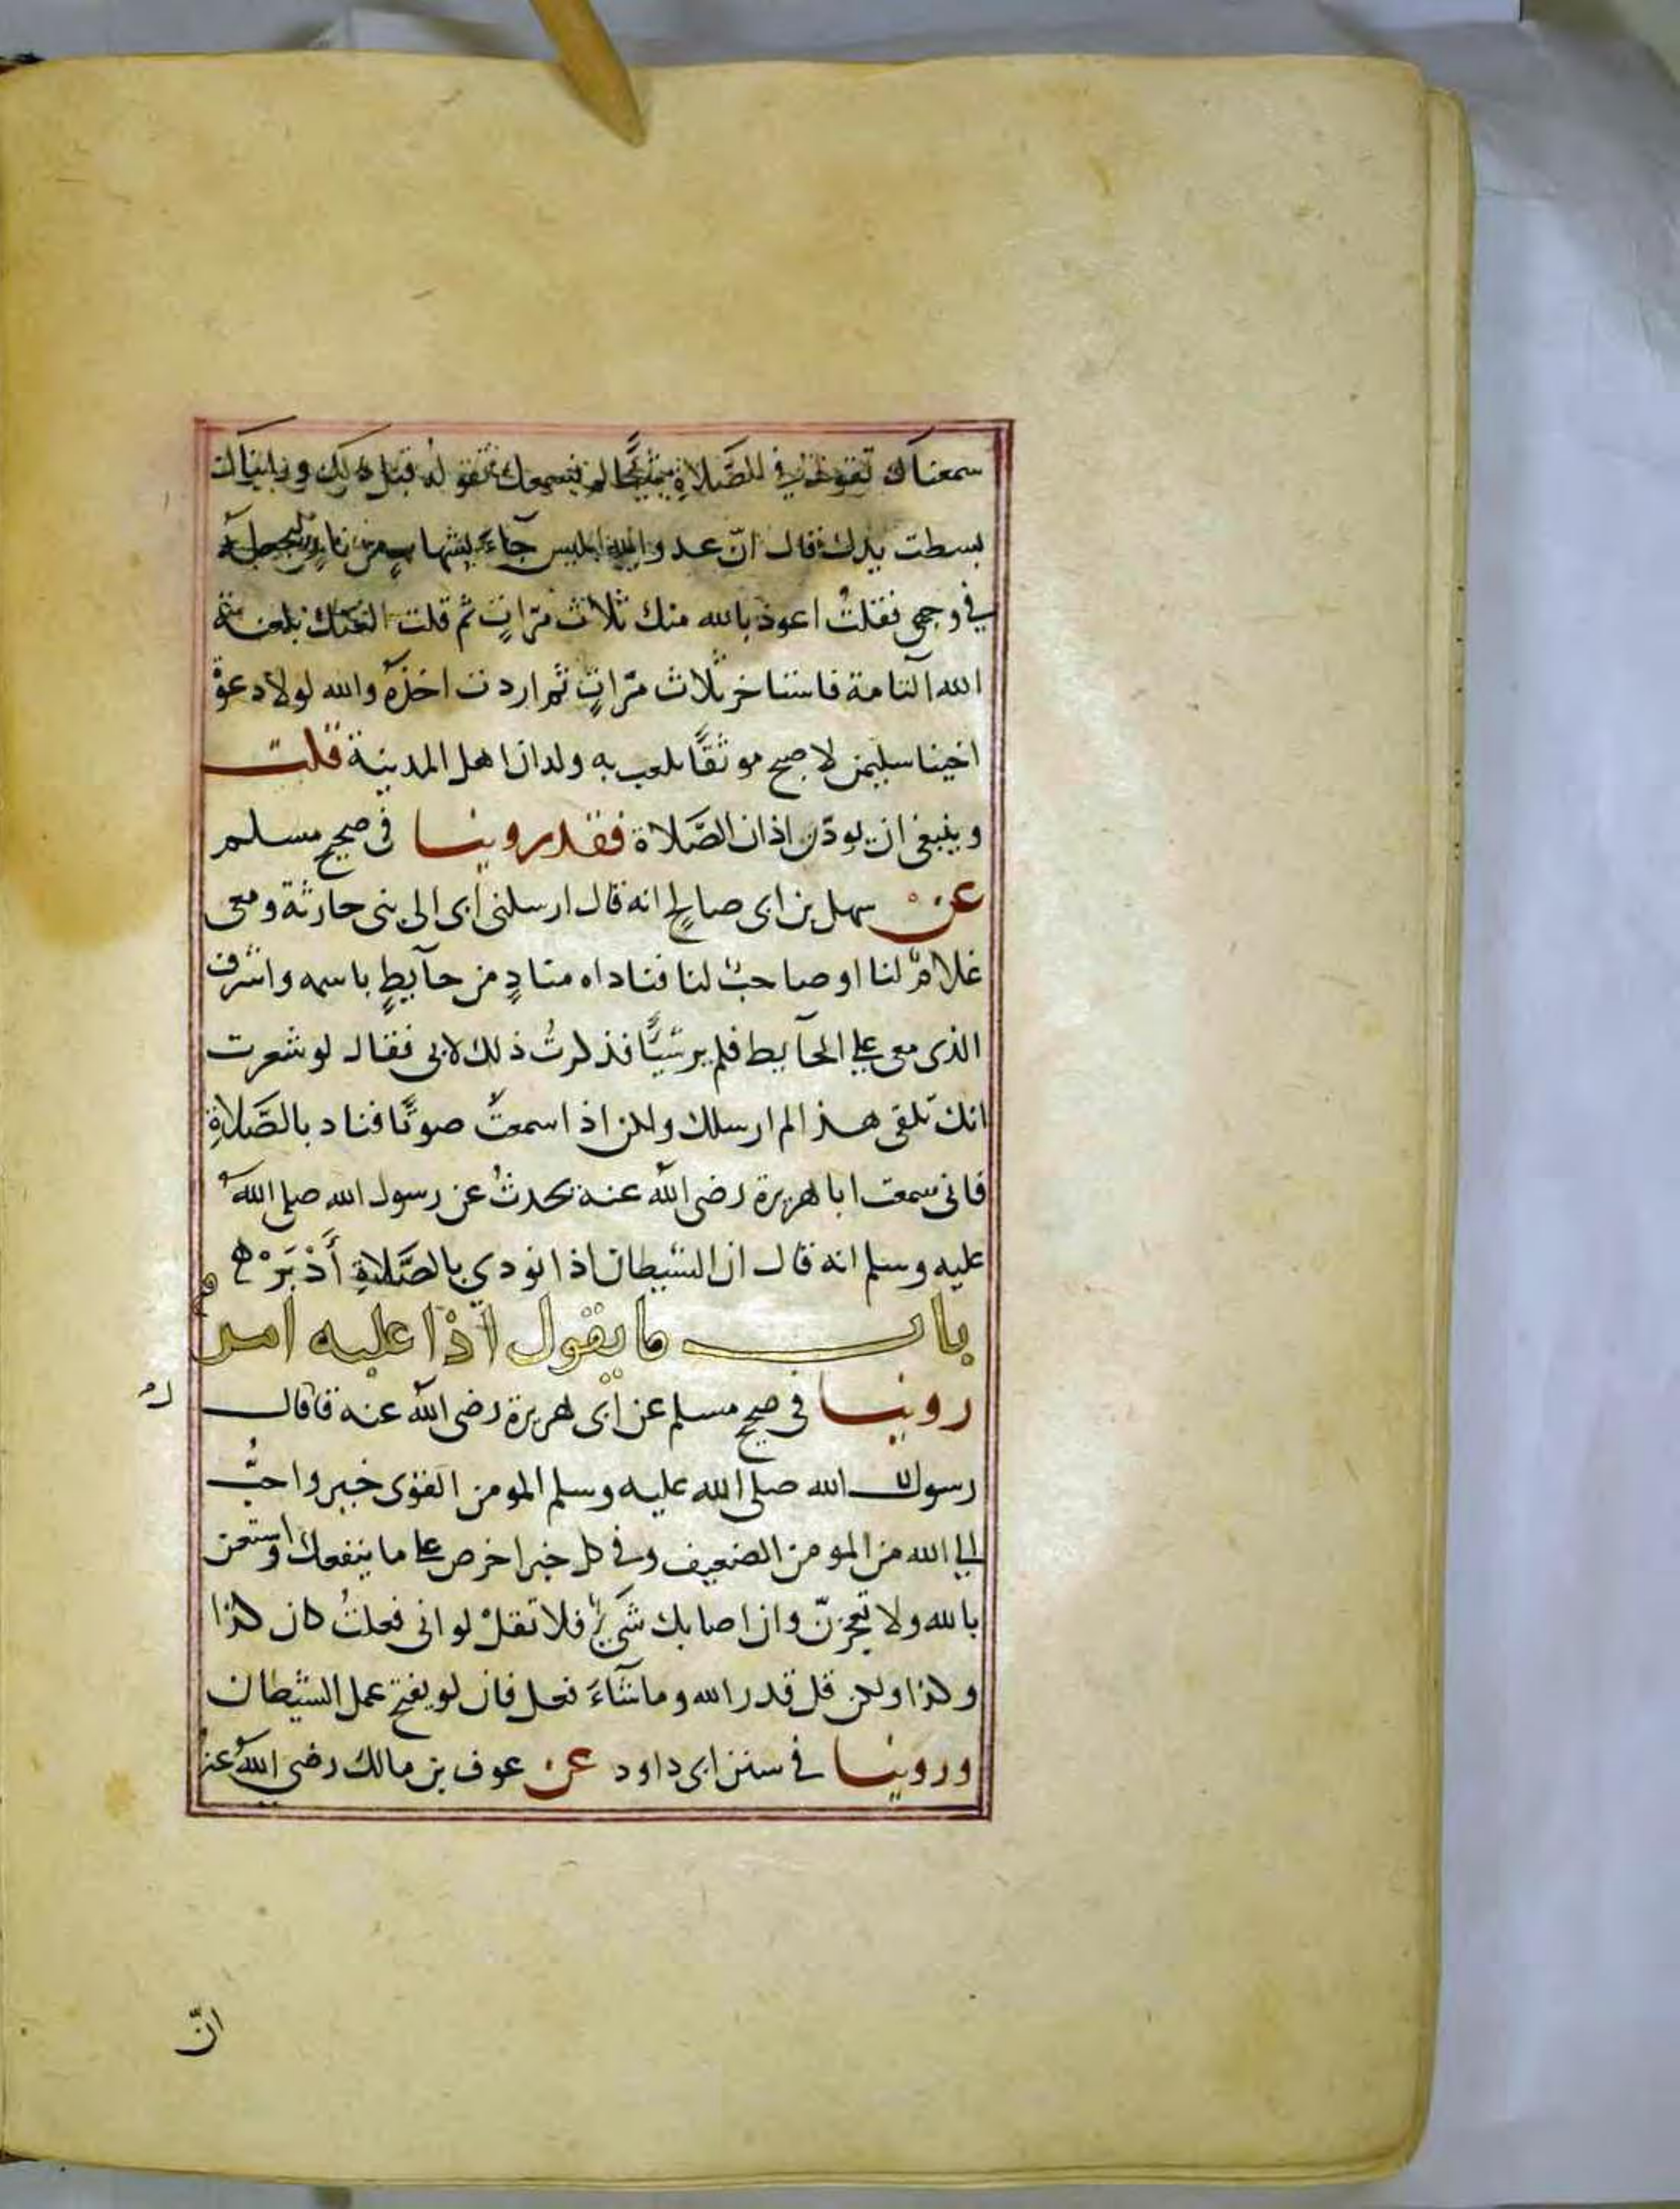 سمعناك تقول في الصَّلاةِ شيئًا لم نسمعك تقوله قبل ذلك ورايناك
بسطت يدك قال انّ عدو الله ابليس جآءَ بشهابٍ من نارٍ ليجعلهُ
في وجهي فقلتُ اعوذ بالله منك ثلاث مرّاتٍ ثم قلت العنك بلعنة
الله التامة فاستاخر ثلاث مرّاتٍ ثم اردت اخذهُ والله لولا دعوة
اخينا سليمن لاصبح موثقًا يلعب به ولدان اهل المدينة قلت
وينبغي ان يوذّن اذان الصَّلاة فقد روينا في صحيح مسلم
عن سهل بن ابي صالحٍ انه قال ارسلني ابي الى بني حارثة ومعي
غلامٌ لنا او صاحبٌ لنا فناداه منادٍ من حآيطٍ باسمه واشرف
الذي معي على الحآيط فلم ير شيًّا فذكرتُ ذلك لابي فقال لو شعرت
انك تلقى هذا لم ارسلك ولكن اذا سمعتَ صوتًا فناد بالصَّلاةِ
فاني سمعت ابا هريرة رضي الله عنه يحدثُ عن رسول الله صلى اللهُ
عليه وسلم انه قال ان الشيطان اذا نودي بالصَّلاةِ أَدْبَرْ ه
باب ما يقول اذا غلبه امر
روينا في صحيح مسلم عن ابي هريرة رضي الله عنه قا قال
رسول الله صلى الله عليه وسلم المومن القوى خير واحبُّ
الى الله من المومن الضعيف وفي كل خير احرص على ما ينفعك واستعن
بالله ولا تعجزنّ وان اصابك شَيءٌ فلا تقلْ لو اني فعلتُ كان كذا
وكذا ولكن قل قدر الله وما شآءَ فعل فان لو يفتح عمل الشيطان
وروينا في سنن ابي داود عن عوف بن مالك رضي اللهُ عنه
انّ